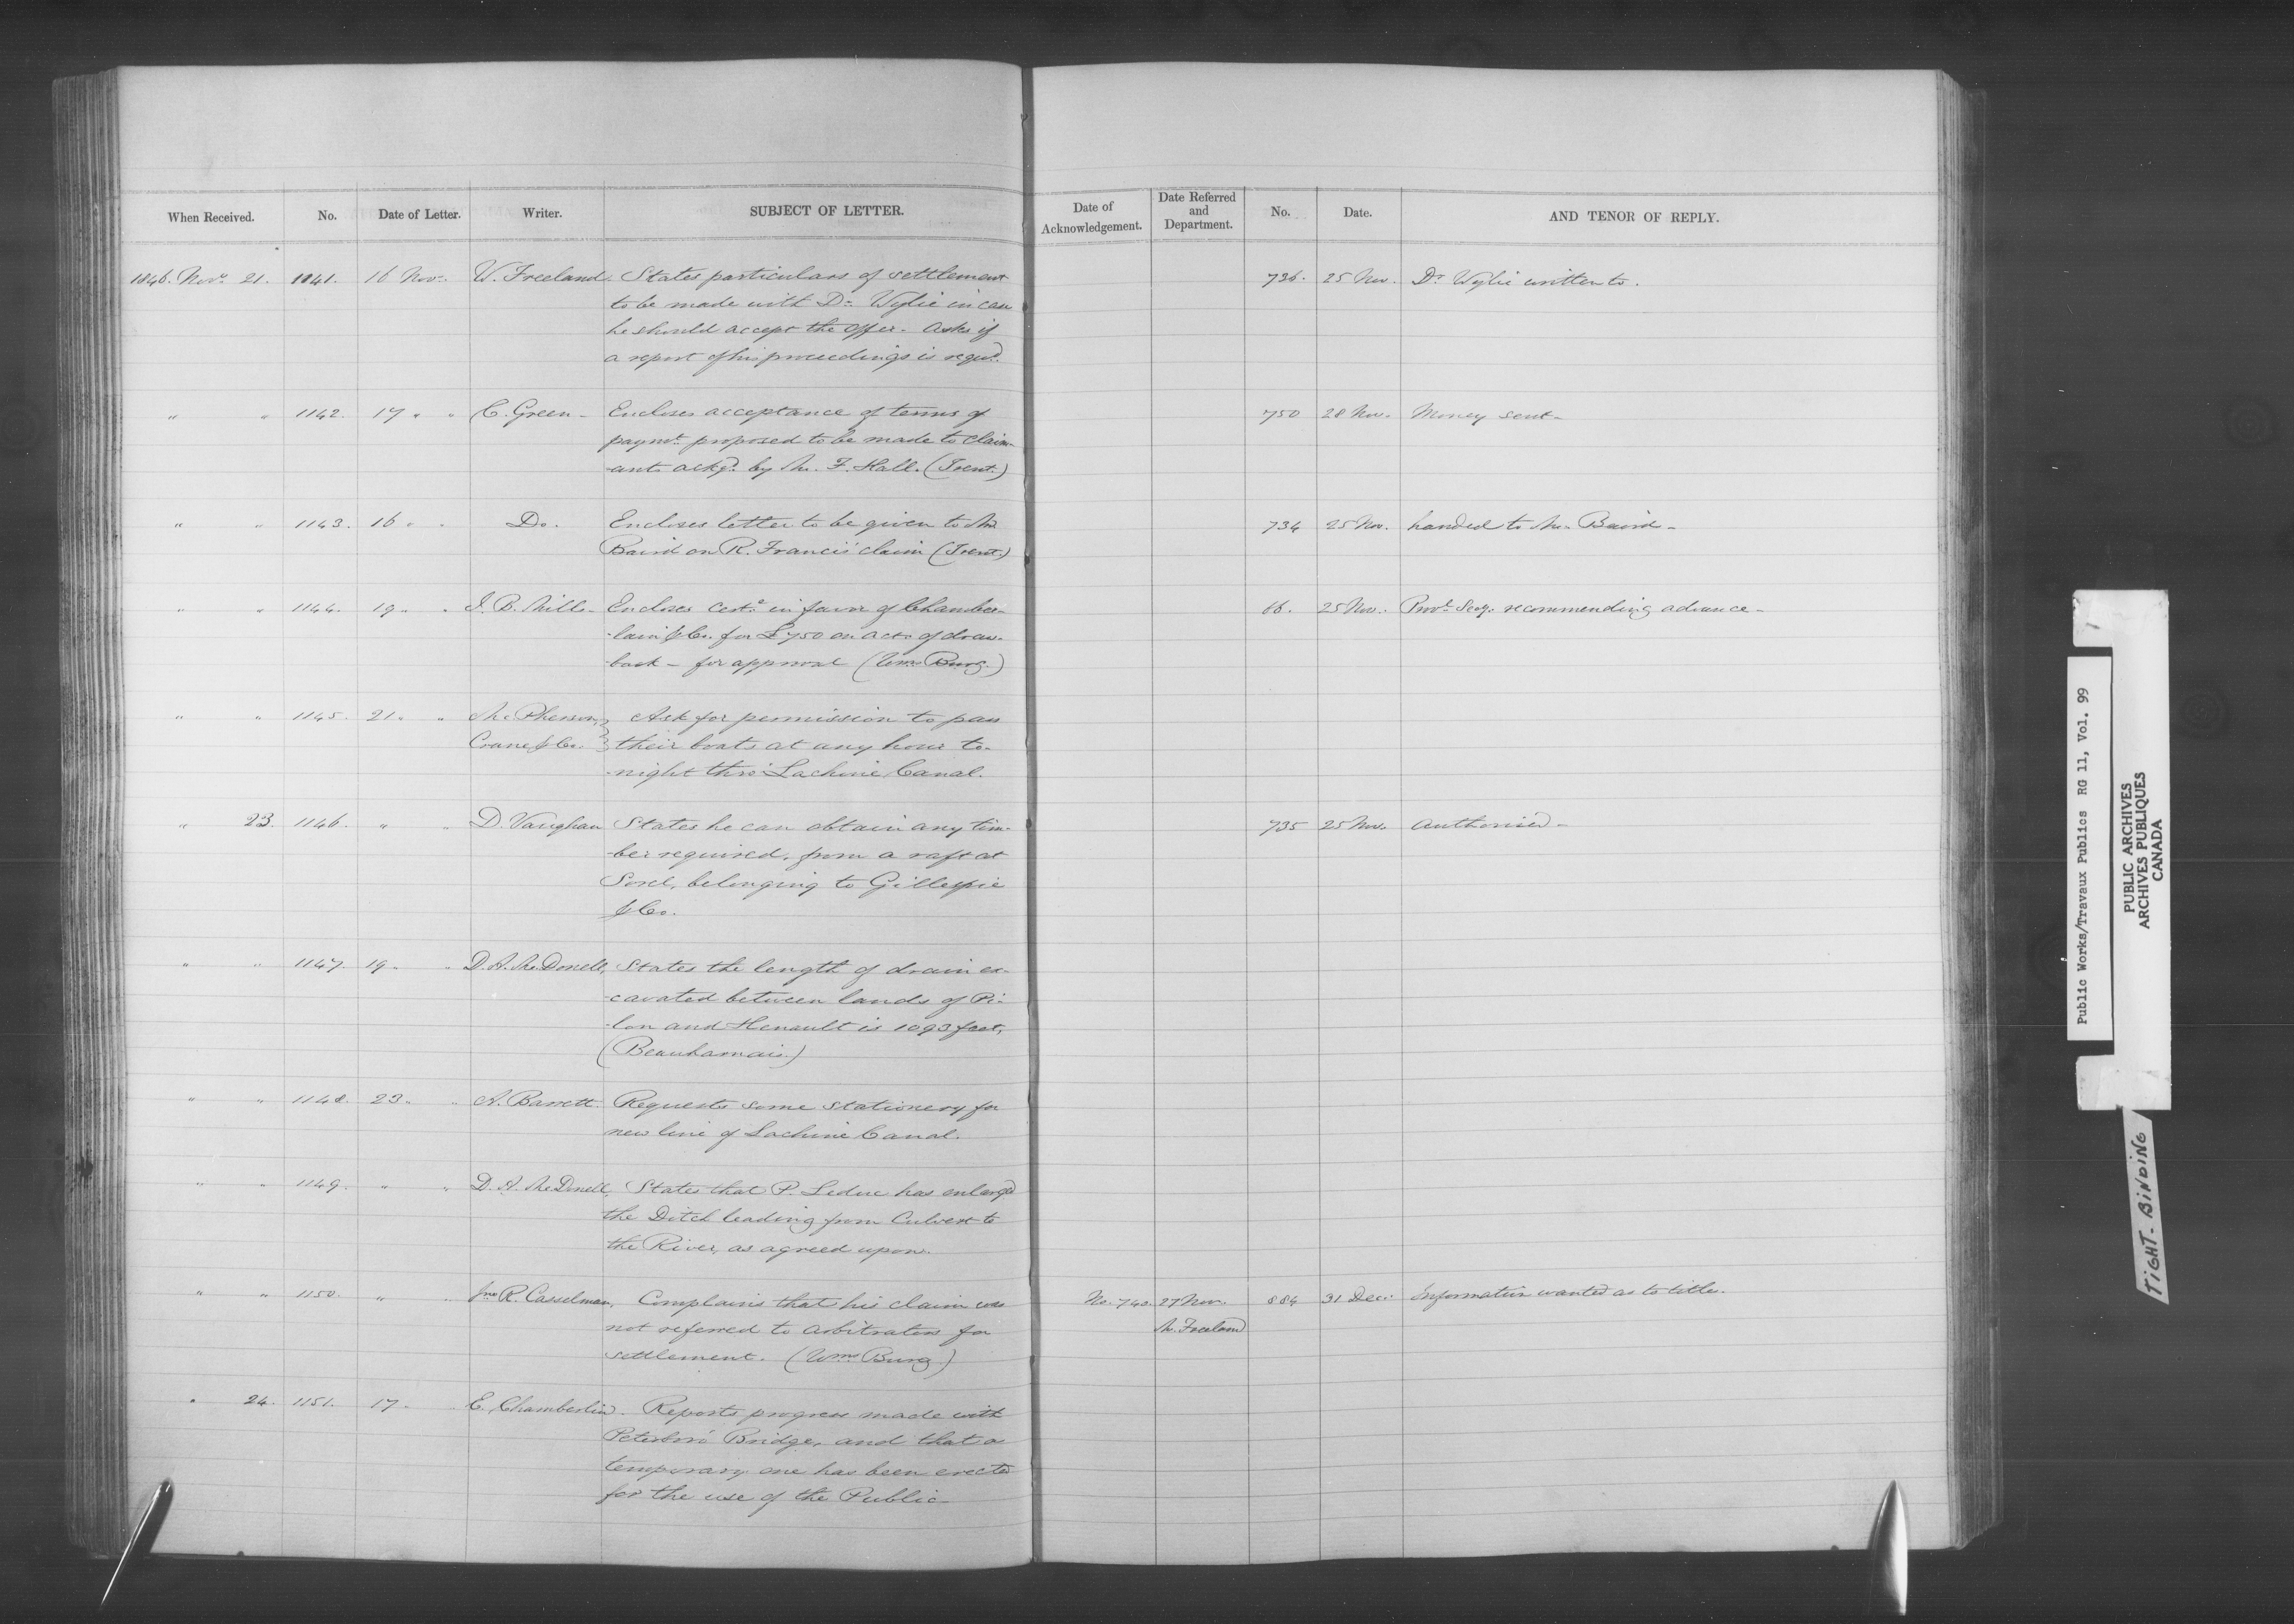 When Received. No. Date of Letter. Writer. SUBJECT OF LETTER. Date of Acknowledgement. Date Referred and Department. No. Date. AND TENOR OF REPLY.
1846. Novr 21. 1141. 16 Novr. W. Freeland. States particulars of settlement 736. 25 Nov. Dr Wylie written to.
to be made with Dr. Wylie in case
he should accept the offer. Asks if
a report of his proceedings is reqd.
" " 1142. 17 " " C. Green. Encloses acceptance of terms of 750 28 Nov. Money sent.
paymt. proposed to be made to claim-
-ants ackd. by Mr. F. Hall. (Trent.)
" " 1143. 16 " " Do. Encloses letter to be given to Mr 734 25 Nov. handed to Mr. Baird.
Baird on R. Francis' claim (Trent.)
" " 1144. 19 " " J. B. Mills. Encloses Certe. in favor of Chamber- 66. 25 Nov. Provl. Secy. recommending advance.
-lain & Co. for £750 on acct. of draw-
-back - for approval (Wms Burg.)
" " 1145. 21 " " McPherson, Ask for permission to pass
Crane & Co. } their boats at any hour to-
-night thro' Lachine Canal.
" 23. 1146. " " D. Vaughan States he can obtain any tim- 735 25 Nov. Authorised.
-ber required, from a raft at
Sorel, belonging to Gillespie
& Co.
" " 1147. 19 " " D. A. McDonell, States the length of drain ex-
-cavated between lands of Pi-
-lon and Henault is 1093 feet,
(Beauharnois.)
" " 1148. 23 " " A. Barrett. Requests some stationery for
new line of Lachine Canal.
" " 1149. " " D. A. McDonell, States that P. Leduc has enlargd
the Ditch leading from Culvert to
the River, as agreed upon.
" " 1150. " " Jno R. Casselman, Complains that his claim was No. 740. 27 Nov. 884 31 Decr. Information wanted as to title.
not referred to Arbitrators for M. Freeland
settlement. (Wms Burg)
" 24. 1151. 17 " " E. Chamberlin. Reports progress made with
Peterboro' Bridge, and that a
temporary one has been erected
for the use of the Public.
Public Works/Travaux Publics RG 11, Vol. 99
PUBLIC ARCHIVES
ARCHIVES PUBLIQUES
CANADA
TIGHT-BINDING